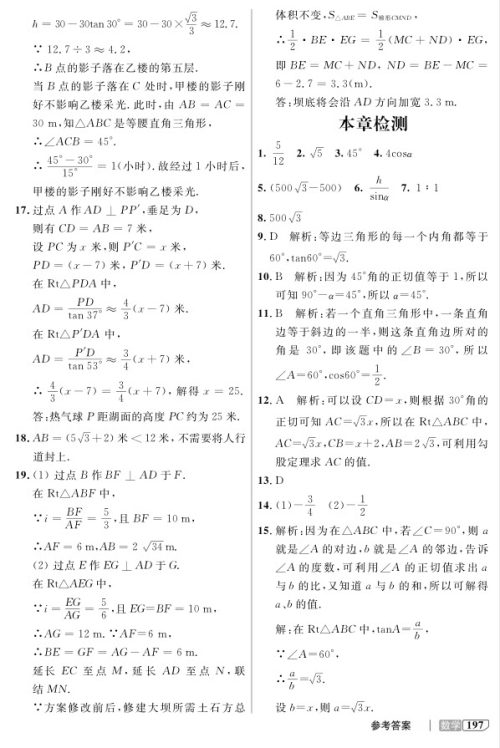 h＝30－30tan 30°＝30－30×√3/3≈12.7.
∵12.7÷3≈4.2,
∴B点的影子落在乙楼的第五层.
当B点的影子落在C处时,甲楼的影子刚
好不影响乙楼采光.此时,由AB＝AC＝
30 m,知△ABC是等腰直角三角形,
∴∠ACB＝45°.
∴(45°－30°)/15°＝1(小时).故经过1小时后,
甲楼的影子刚好不影响乙楼采光.
17.过点A作AD⊥PP′,垂足为D,
则有CD＝AB＝7米,
设PC为x米,则P′C＝x米,
PD＝(x－7)米,P′D＝(x＋7)米.
在Rt△PDA中,
AD＝PD/tan 37°≈4/3(x－7)米.
在Rt△P′DA中,
AD＝P′D/tan 53°≈3/4(x＋7)米,
∴4/3(x－7)＝3/4(x＋7),解得x＝25.
答:热气球P距湖面的高度PC约为25米.
18.AB＝(5√3＋2)米＜12米,不需要将人行
道封上.
19.(1)过点B作BF⊥AD于F.
在Rt△ABF中,
∵i＝BF/AF＝5/3,且BF＝10 m,
∴AF＝6 m,AB＝2√34 m.
(2)过点E作EG⊥AD于G.
在Rt△AEG中,
∵i＝EG/AG＝5/6,且EG=BF＝10 m,
∴AG＝12 m.∵AF=6 m,
∴BE＝GF＝AG－AF＝6 m.
延长EC至点M,延长AD至点N,联
结MN.
∵方案修改前后,修建大坝所需土石方总
体积不变,S△ABE＝S梯形CMND,
∴1/2·BE·EG＝1/2(MC＋ND)·EG,
即BE＝MC＋ND,ND＝BE－MC＝
6－2.7＝3.3(m).
答:坝底将会沿AD方向加宽3.3 m.
本章检测
1. 5/12 2. √5 3. 45° 4. 4cosα
5. (500√3－500) 6. h/sinα 7. 1∶1
8. 500√3
9. D 解析:等边三角形的每一个内角都等于
60°,tan60°=√3.
10. B 解析:因为45°角的正切值等于1,所以
可知90°－α=45°,所以α=45°.
11. B 解析:若一个直角三角形中,一条直角
边等于斜边的一半,则这条直角边所对的
角是30°,即该题中的∠B＝30°,所以
∠A=60°,cos60°=1/2.
12. A 解析:可以设CD=x,则根据30°角的
正切可知AC=√3x,所以在Rt△ABC中,
AC=√3x,CB=x＋2,AB=2√3,可利用勾
股定理求AC的值.
13. D
14. (1)－3/4 (2)－1/2
15. 解析:因为在△ABC中,若∠C=90°,则a
就是∠A的对边,b就是∠A的邻边,告诉
∠A的度数,可利用∠A的正切值求出a
与b的比,又知道a与b的和,所以可解得
a、b的值.
解:在Rt△ABC中,tanA=a/b,
∵∠A=60°,
∴a/b=√3.
设b=x,则a=√3x.
参考答案 数学 197